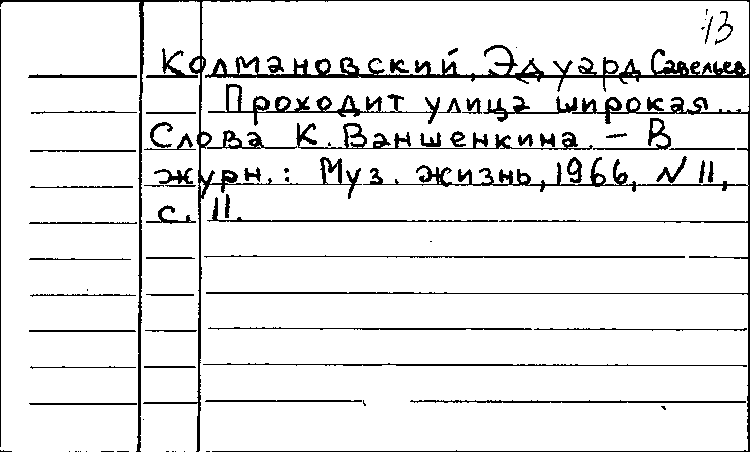 13
Колмановский, Эдуард Савельев
Проходит улица широкая...
Слова К. Ваншенкина. – В
журн.: Муз. жизнь, 1966, N 11,
с. 11.